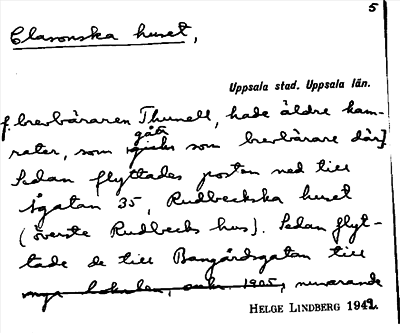 5
Clasonska huset,
Uppsala stad. Uppsala län.
f. brevbäraren Thunell, hade äldre kam-
rater, som gått som brevbärare där].
Sedan flyttades posten ned till
Ågatan 35, Rudbeckska huset
(överste Rudbecks hus). Sedan flyt-
tade de till Bangårdsgatan till
nya lokalen, 1905, nuvarande
HELGE LINDBERG 1942.